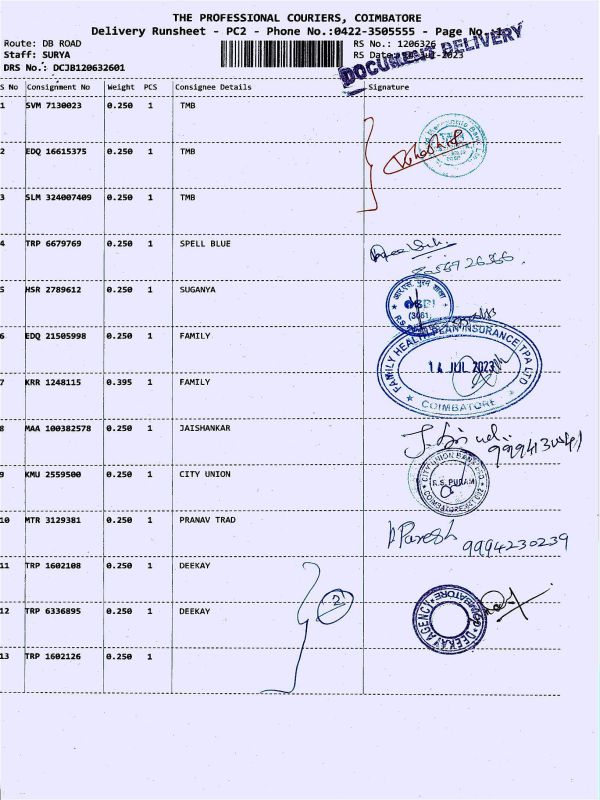 THE PROFESSIONAL COURIERS, COIMBATORE
Delivery Runsheet - PC2 - Phone No.:0422-3505555 - Page No.:1
Route: DB ROAD
Staff: SURYA
DRS No.: DCJB120632601
RS No.: 1206326
RS Date: 14-Jul-2023
DOCUMENT DELIVERY
S No Consignment No Weight PCS Consignee Details Signature
1 SVM 7130023 0.250 1 TMB
2 EDQ 16615375 0.250 1 TMB
3 SLM 324007409 0.250 1 TMB
4 TRP 6679769 0.250 1 SPELL BLUE
5 HSR 2789612 0.250 1 SUGANYA
SBI
6 EDQ 21505998 0.250 1 FAMILY
FAMILY HEALTH PLAN INSURANCE TPA LTD
14 JUL 2023
COIMBATORE
7 KRR 1248115 0.395 1 FAMILY
8 MAA 100382578 0.250 1 JAISHANKAR
9 KMU 2559500 0.250 1 CITY UNION
CITY UNION BANK LTD
R.S. PURAM
10 MTR 3129381 0.250 1 PRANAV TRAD
Paresh
9994230239
11 TRP 1602108 0.250 1 DEEKAY
12 TRP 6336895 0.250 1 DEEKAY
2
DEEKAY AGENCY
COIMBATORE
13 TRP 1602126 0.250 1